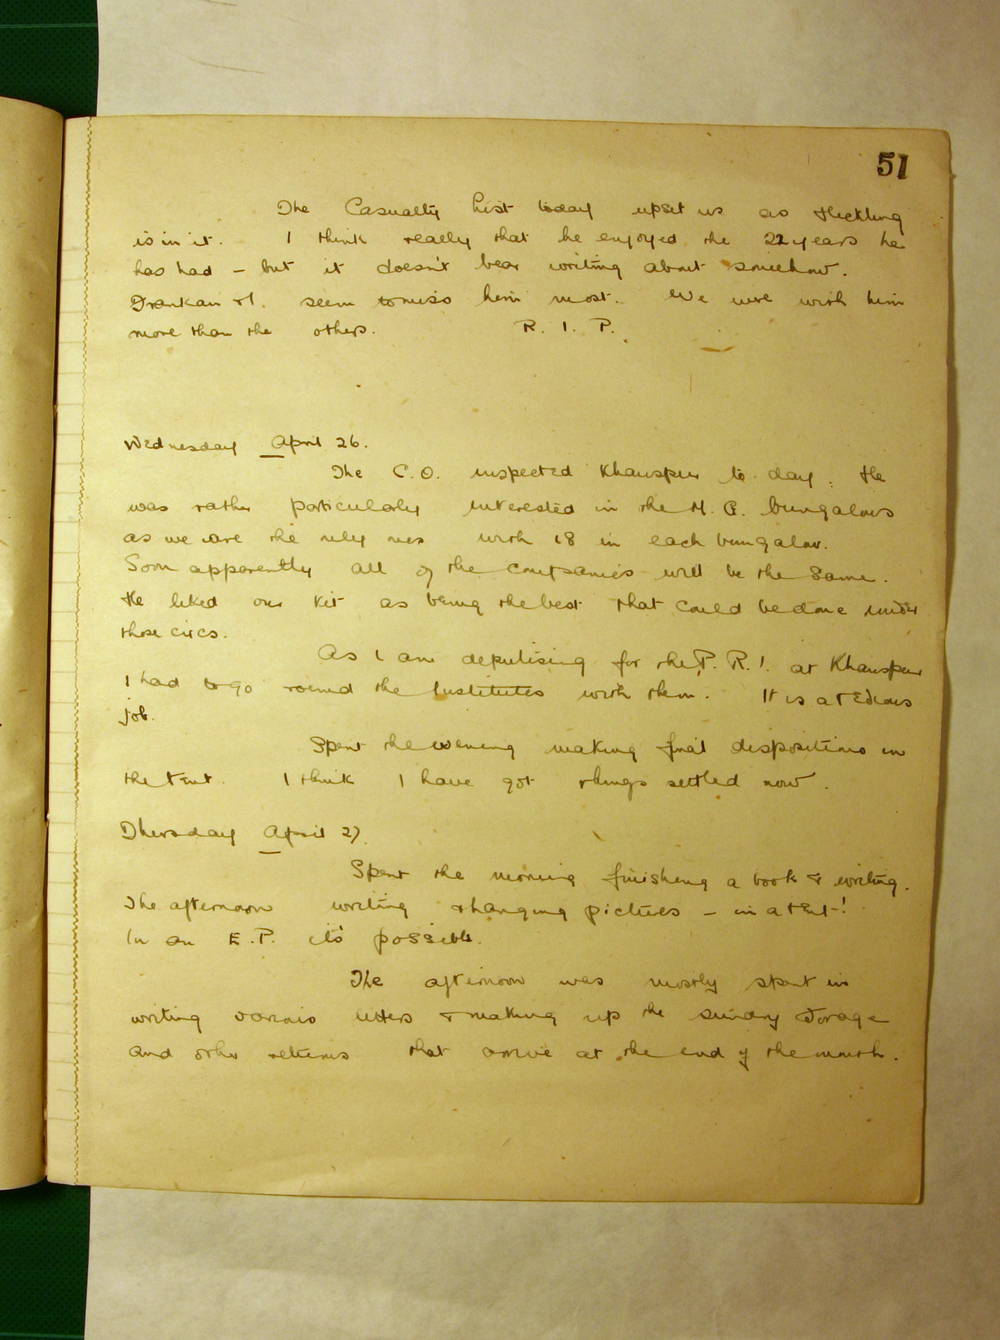 51
The Casualty List today upset us as Heckling
is in it. I think really that he enjoyed the 22 years he
has had – but it doesn't bear writing about somehow.
& I. seem to miss him most. We were with him
more than the others. R. I. P.
Wednesday April 26.
The C.O. inspected Khanspur to day. He
was rather particularly interested in the M. G. bungalows
as we are the only ones with 18 in each bungalow.
Soon apparently all of the companies will be the same.
He liked our kit as being the best that could be done under
those circs.
As I am deputising for the P. R. I. at Khanspur
I had to go round the Institutes with them. It is a tedious
job.
Spent the evening making final dispositions in
the tent. I think I have got things settled now.
Thursday April 27.
Spent the morning finishing a book & writing.
The afternoon writing & hanging pictures – in a tent!
In an E.P. its possible.
The afternoon was mostly spent in
writing various letters & making up the sundry Forage
and other returns that arrive at the end of the month.